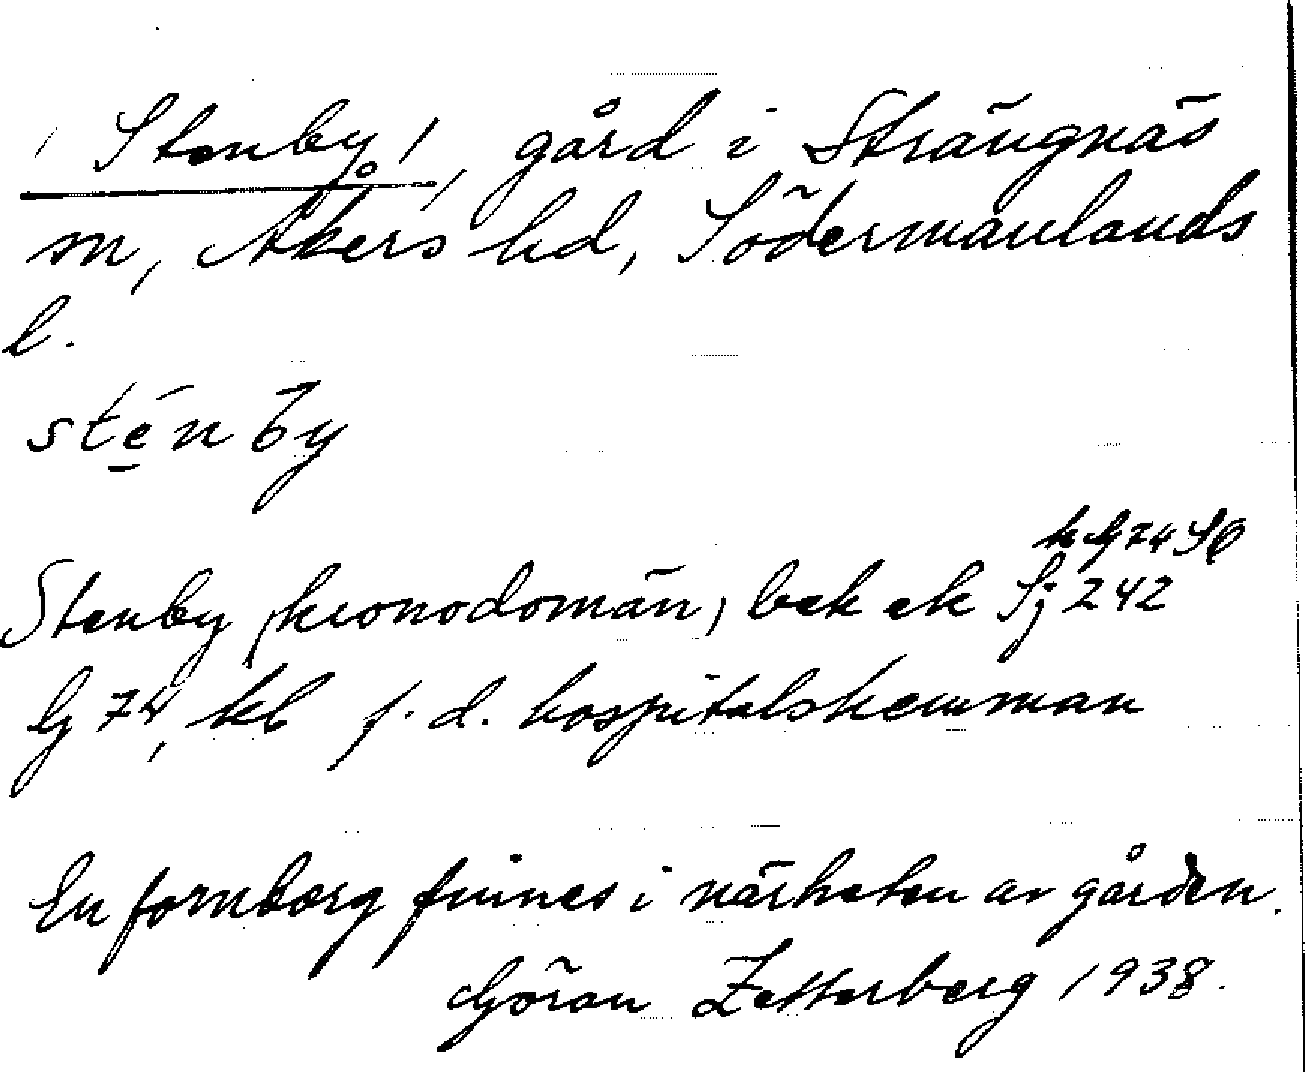 Stenby, gård i Strängnäs
sn, Åkers hd, Södermanlands
l.
sténby
Stenby (kronodomän, bek ek Sj 242
bj 74, kl f. d. hospitalshemman
En fornborg finnes i närheten av gården.
Göran Zetterberg 1938.